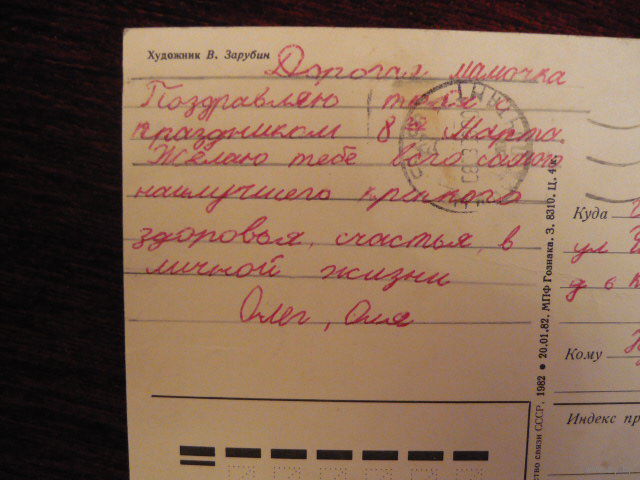 Художник В. Зарубин
Дорогая мамочка
Поздравляю тебя с
праздником 8 Марта.
Желаю тебе всего самого
наилучшего крепкого
здоровья, счастья, в
личной жизни
Олег, Оля
Куда
ул
д 6 к
Кому
Индекс пр
ство связи СССР, 1982 ● 20.01.82. МПФ Гознака. З. 8310. Ц. 4